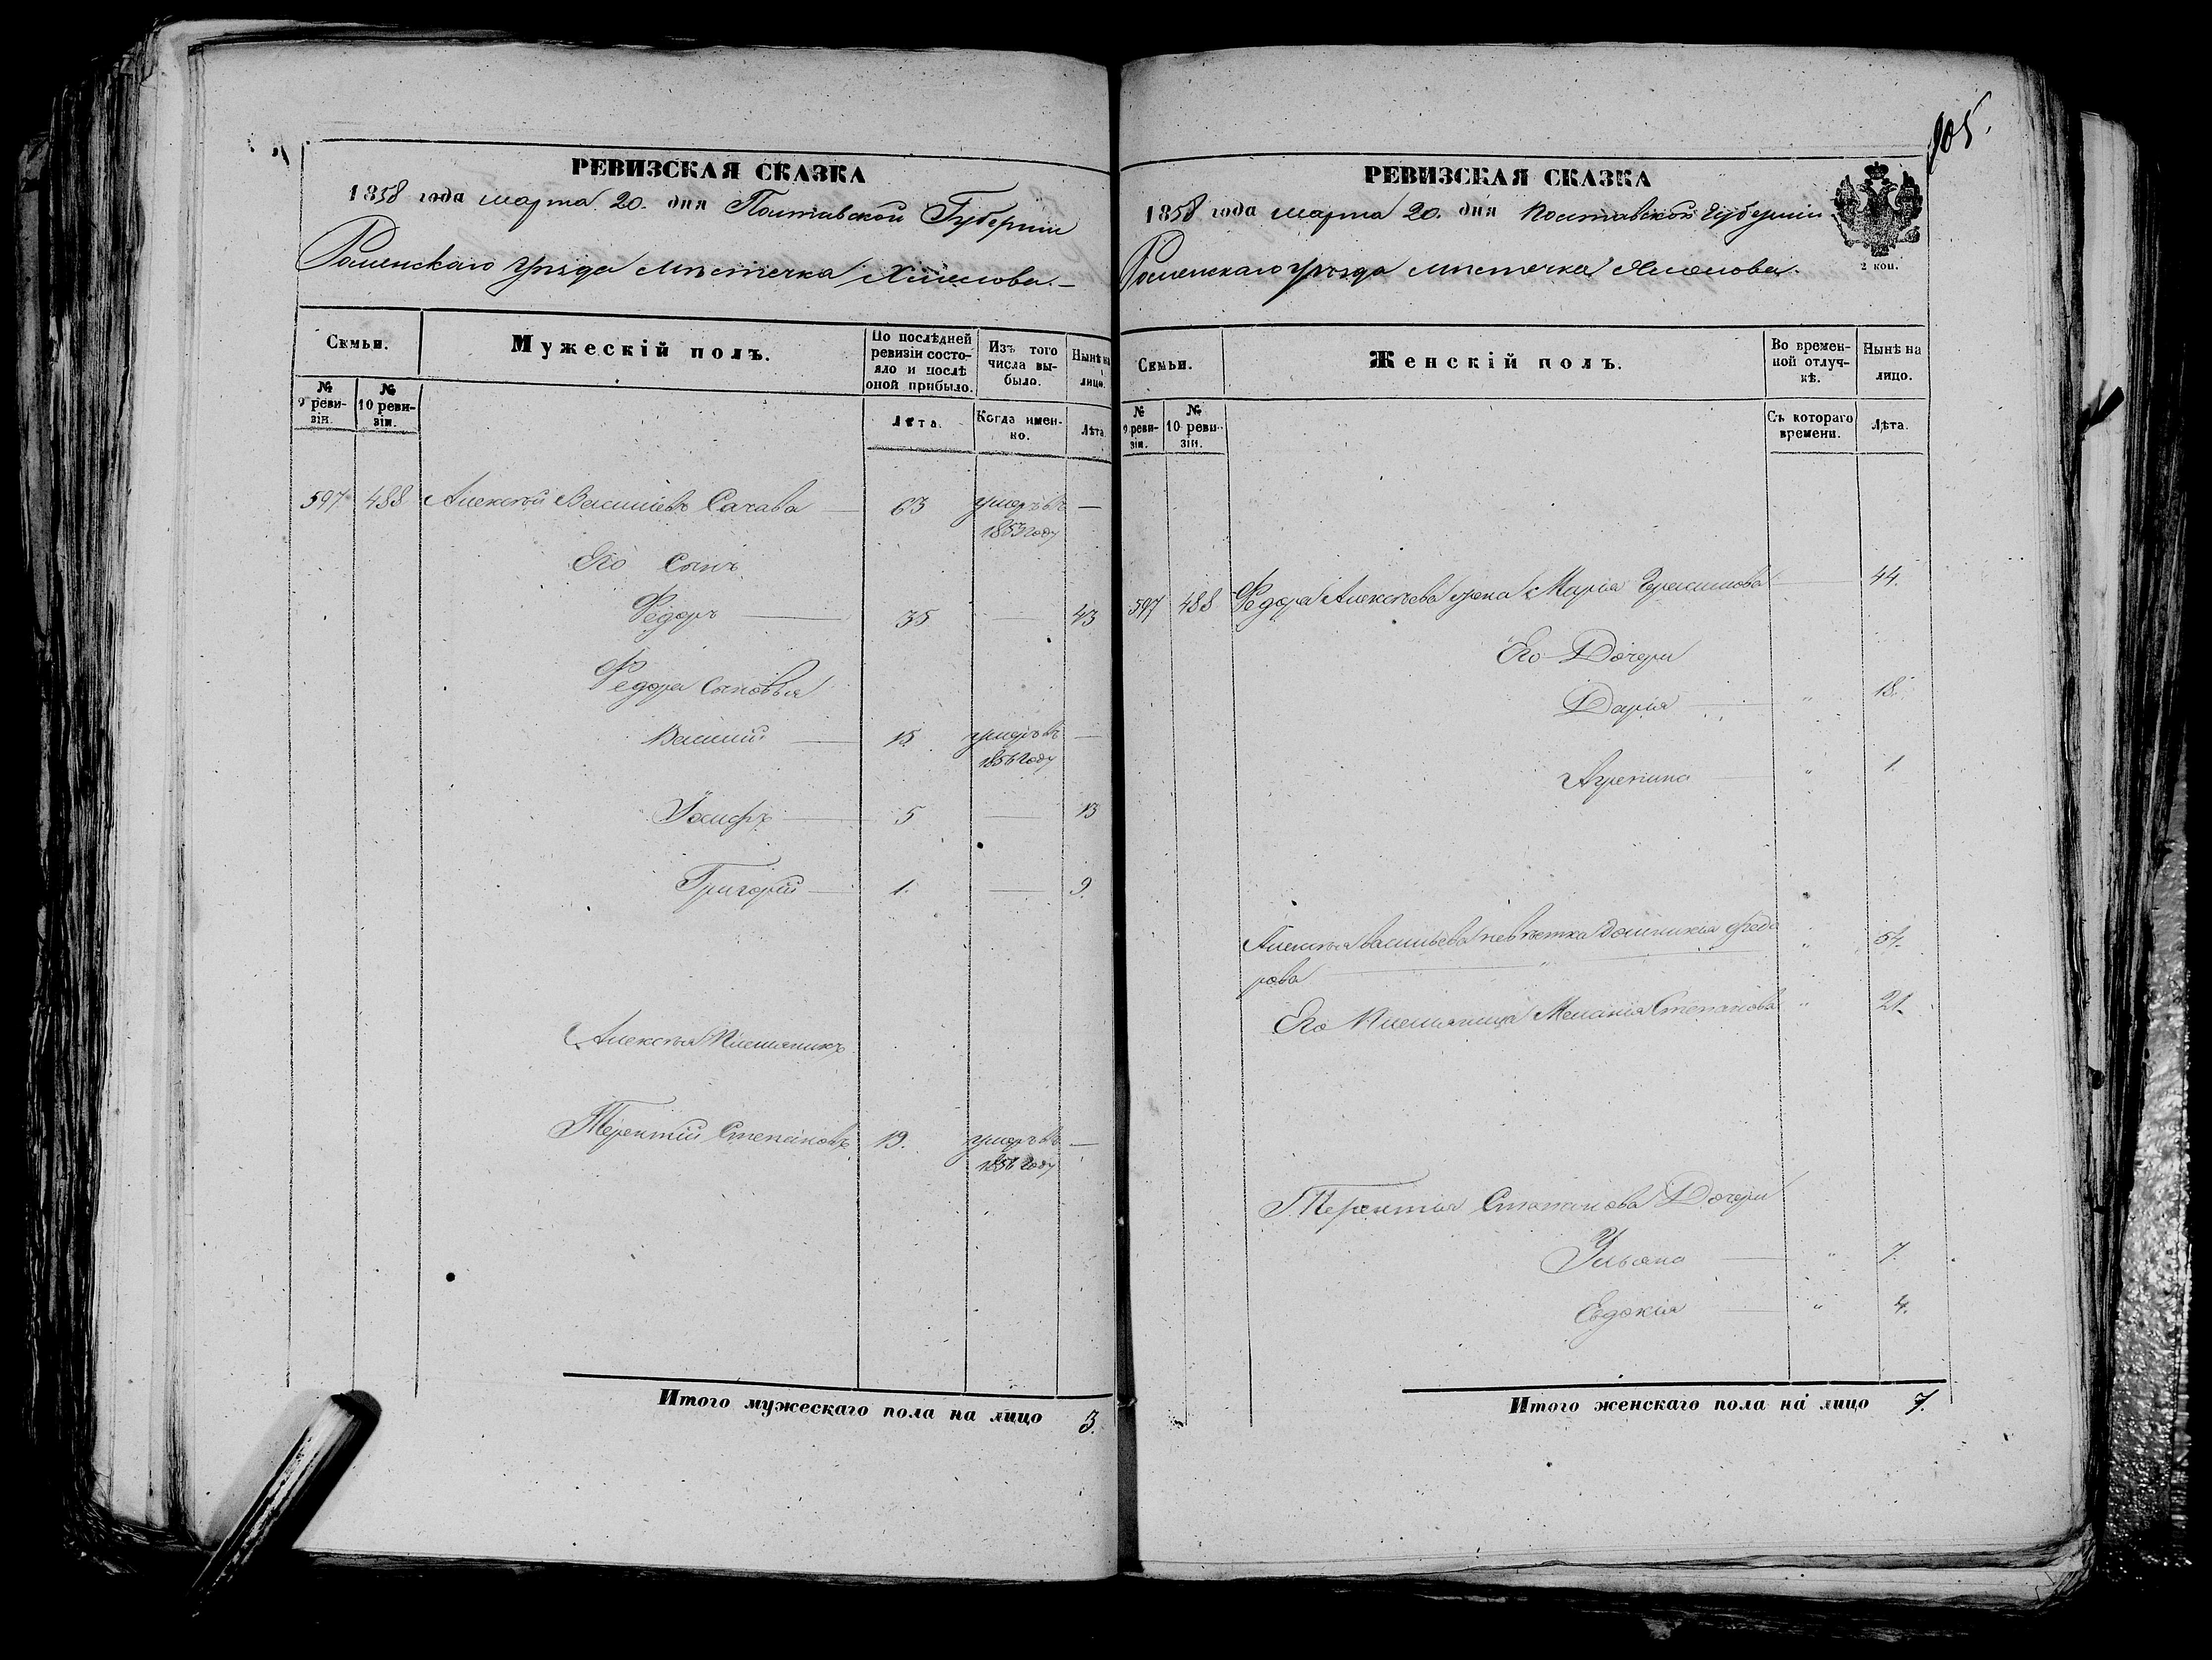 РЕВИЗСКАЯ СКАЗКА
1858 года марта 20. дня Полтавской Губернии
Роменскаго уѣзда мѣстечка Хмелова.
Семьи.
Мужескій полъ.
По послѣдней ревизіи состояло и послѣ оной прибыло.
Изъ того числа выбыло.
Нынѣ на лицо.
№ 9 ревизіи.
№ 10 ревизіи.
Лѣта.
Когда именно.
Лѣта.
597 488 Алексѣй Васильевъ Сахава — 63 умеръ въ —
1853 году
Его Сынъ
Федоръ — 35 — 43
Федора Сыновья
Василий — 15 умеръ въ —
1856 году
Іосифъ — 5 — 13
Григорій — 1. — 9.
Алексѣя Племяникъ
Терентій Степановъ 19. умеръ въ —
1856 году
Итого мужескаго пола на лицо 3.
905.
РЕВИЗСКАЯ СКАЗКА
1858 года марта 20. дня Полтавской Губерніи
2 коп.
Роменскаго уѣзда мѣстечка Хмелова.
Семьи.
Женскій полъ.
Во временной отлучкѣ.
Нынѣ на лицо.
№ 9 ревизіи.
№ 10 ревизіи.
Съ котораго времени.
Лѣта.
597 488 Федора Алексѣева жена Марія Герасимова — 44.
Его Дочери
Дарія — " 18.
Агрепина — " 1.
Алексѣя Васильева невѣстка Домникія Федо
рова — " 54.
Его Племяница Меланія Степанова " 21.
Терентия Степанова Дочери
Ульяна — " 7.
Евдокія — " 4.
Итого женскаго пола на лицо 7.